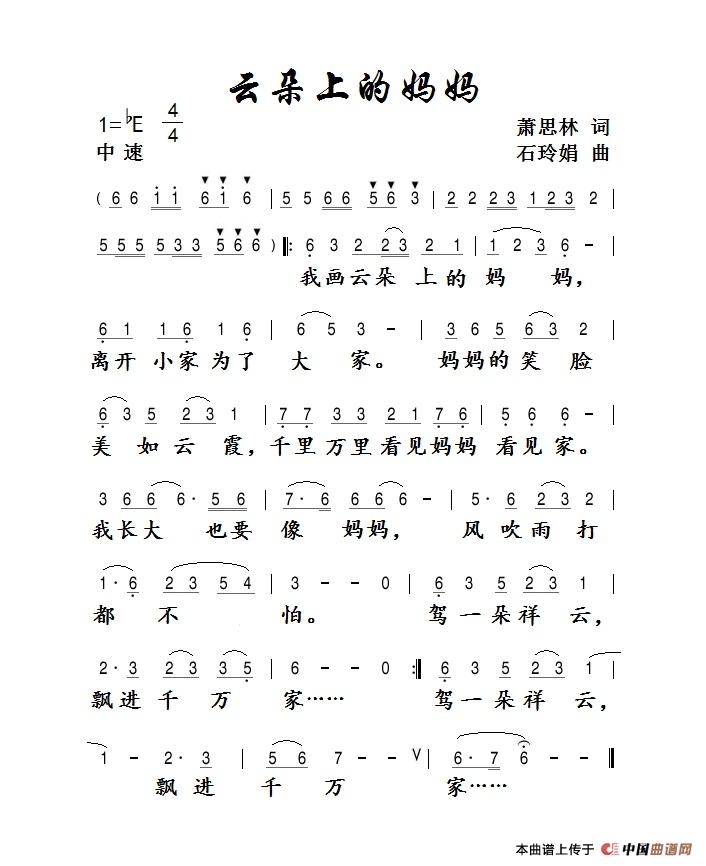 云朵上的妈妈
1=♭E 4/4 萧思林 词
中速 石玲娟 曲
( 6 6 1 1 6 1 6 | 5 5 6 6 5 6 3 | 2 2 2 3 1 2 3 2 |
5 5 5 5 3 3 5 6 6 ) ‖: 6 3 2 2 3 2 1 | 1 2 3 6 - |
我画云朵 上的 妈 妈,
6 1 1 6 1 6 | 6 5 3 - | 3 6 5 6 3 2 |
离开 小家 为了 大 家。 妈妈的 笑 脸
6 3 5 2 3 1 | 7 7 3 3 2 1 7 6 | 5 6 6 - |
美 如云 霞,千里 万里 看见妈妈 看见 家。
3 6 6 6 · 5 6 | 7 · 6 6 6 6 - | 5 · 6 2 3 2 |
我长大 也要 像 妈妈, 风吹雨 打
1 · 6 2 3 5 4 | 3 - - 0 | 6 3 5 2 3 1 |
都 不 怕。 驾一朵祥 云,
2 · 3 2 3 3 5 | 6 - - 0 :‖ 6 3 5 2 3 1 |
飘进 千 万 家…… 驾一朵祥 云,
1 - 2 · 3 | 5 5 6 7 - ∨ | 6 · 7 6 - ‖
飘 进 千 万 家……
本曲谱上传于 中国曲谱网